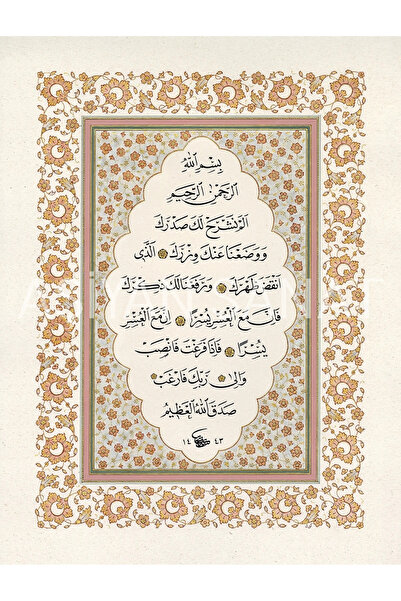 بِسْمِ اللهِ
الرَّحْمٰنِ الرَّحِيْمِ
اَلَمْ نَشْرَحْ لَكَ صَدْرَكَ
وَوَضَعْنَا عَنْكَ وِزْرَكَ اَلَّذِى
اَنْقَضَ ظَهْرَكَ وَرَفَعْنَا لَكَ ذِكْرَكَ
فَاِنَّ مَعَ الْعُسْرِ يُسْرًا اِنَّ مَعَ الْعُسْرِ
يُسْرًا فَاِذَا فَرَغْتَ فَانْصَبْ
وَاِلٰى رَبِّكَ فَارْغَبْ
صَدَقَ اللهُ الْعَظِيْمُ
١٤٤٣